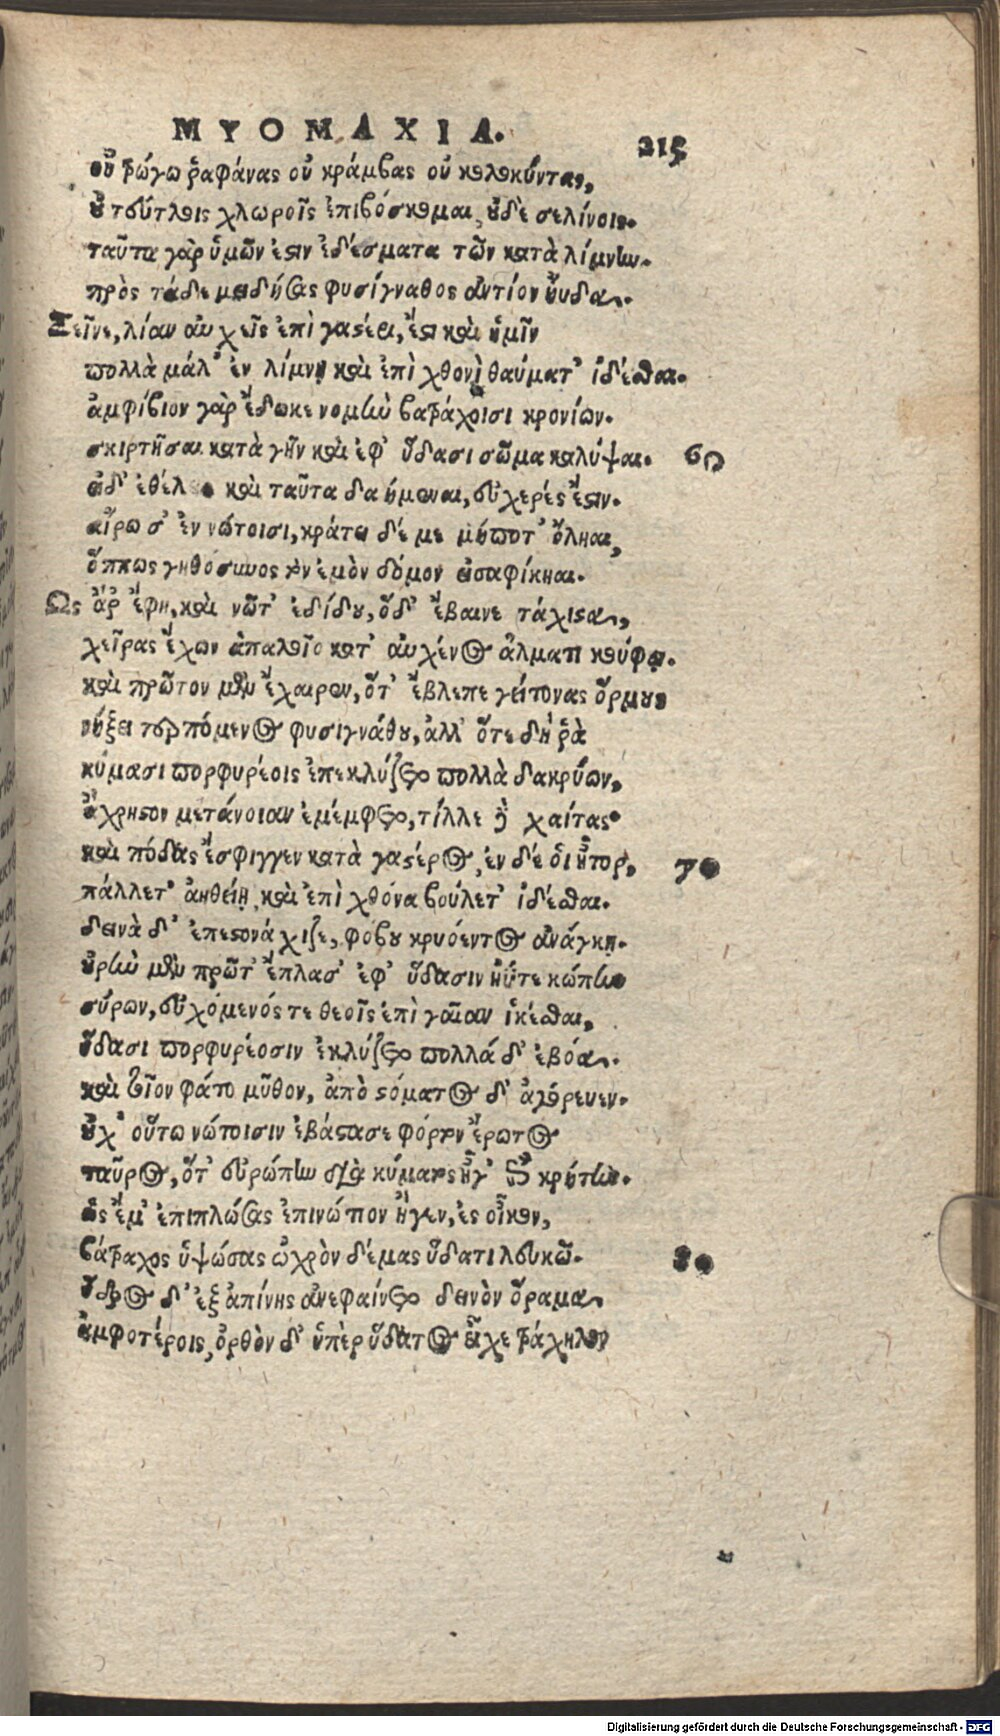 ΜΥΟΜΑΧΙΑ. 215
οὐ τρώγω ῥαφάνας οὐ κράμβας οὐ κολοκύντας,
οὐ τεύτλοις χλωροῖς ἐπιβόσκομαι, οὐδὲ σελίνοις.
ταῦτα γὰρ ὑμῶν ἐστὶν ἐδέσματα τῶν κατὰ λίμνην.
πρὸς τάδε μειδήσας φυσίγναθος ἀντίον ηὔδα.
Ξεῖνε, λίαν αὐχεῖς ἐπὶ γαστέρι, ἔστι καὶ ἡμῖν
πολλὰ μάλ' ἐν λίμνῃ καὶ ἐπὶ χθονὶ θαύματ' ἰδέσθαι.
ἀμφίβιον γὰρ ἔδωκε νομὴν βατράχοισι κρονίων.
σκιρτῆσαι κατὰ γῆν καὶ ἐφ' ὕδασι σῶμα καλύψαι. 60
εἰ δ' ἐθέλεις καὶ ταῦτα δαήμεναι, εὐχερές ἐστιν.
αἴρω σ' ἐν νώτοισι, κράτει δέ με μήποτ' ὄληαι,
ὅππως γηθόσυνος τὸν ἐμὸν δόμον εἰσαφίκηαι.
Ὣς ἄρ ἔφη, καὶ νῶτ' ἐδίδου, ὁ δ' ἔβαινε τάχιστα,
χεῖρας ἔχων ἁπαλοῖο κατ' αὐχένος ἅλματι κούφῳ.
καὶ πρῶτον μὲν ἔχαιρεν, ὅτ' ἔβλεπε γείτονας ὅρμους
νήξει τερπόμενος φυσιγνάθου, ἀλλ' ὅτε δή ῥα
κύμασι πορφυρέοις ἐπεκλύζετο πολλὰ δακρύων,
ἄχρηστον μετάνοιαν ἐμέμφετο, τίλλε δὲ χαίτας
καὶ πόδας ἔσφιγγεν κατὰ γαστέρος, ἐν δέ οἱ ἦτορ, 70
πάλλετ' ἀηθείῃ, καὶ ἐπὶ χθόνα βούλετ' ἰδέσθαι.
δεινὰ δ' ἐπεστονάχιζε, φόβου κρυόεντος ἀνάγκῃ.
οὐρὴν μὲν πρῶτ' ἔπλασ' ἐφ' ὕδασιν ἠΰτε κώπην
σύρων, εὐχόμενός τε θεοῖς ἐπὶ γαῖαν ἱκέσθαι,
ὕδασι πορφυρέοσιν ἐκλύζετο πολλά δ' ἐβόα.
καὶ τοῖον φάτο μῦθον, ἀπὸ στόματος δ' ἀγόρευεν.
οὐχ' οὕτω νώτοισιν ἐβάστασε φόρτον ἔρωτος
ταῦρος, ὅτ' εὐρώπην διὰ κύματος ἦγ' ἐπὶ κρήτην.
ὡς ἔμ' ἐπιπλώσας ἐπινώτιον ἦγεν, ἐς οἶκον,
βάτραχος ὑψώσας ὠχρὸν δέμας ὕδατι λευκῷ. 80
ὕδρος δ' ἐξαπίνης ἀνεφαίνετο δεινὸν ὅραμα
ἀμφοτέροις, ὀρθὸν δ' ὑπὲρ ὕδατος εἶχε τράχηλον
Digitalisierung gefördert durch die Deutsche Forschungsgemeinschaft - DFG